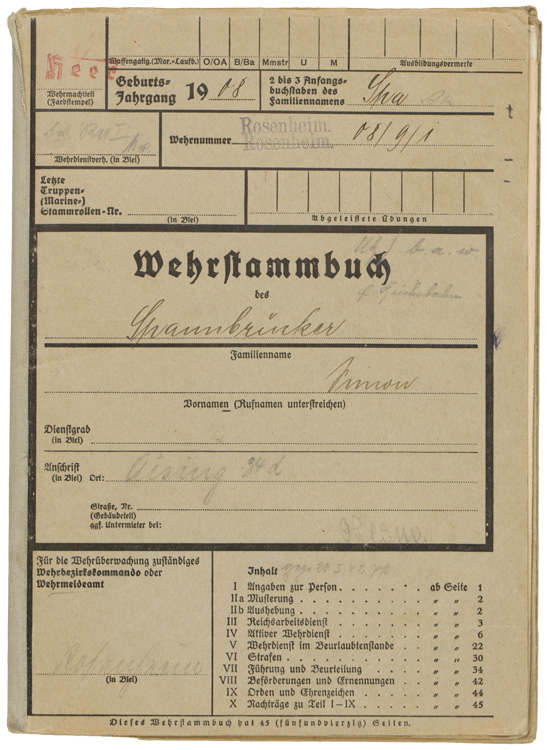 Heer
Wehrmachtteil
(Farbstempel)
Waffengattg.(Mar.-Laufb.) O/OA B/Ba Mmstr U M
Ausbildungsvermerke
Geburts-
Jahrgang 1908
2 bis 3 Anfangs-
buchstaben des
Familiennamens Spa
Wehrdienstverh. (in Blei)
Wehrnummer Rosenheim. 08/9/1
Rosenheim.
Letzte
Truppen-
(Marine-)
Stammrollen-Nr.
(in Blei)
Abgeleistete Übungen
Wehrstammbuch
des
Spannbrucker
Familienname
Simon
Vornamen (Rufnamen unterstreichen)
Dienstgrad
(in Blei)
Anschrift
(in Blei) Ort: Aising 34d
Straße, Nr.
(Gebäudeteil)
ggf. Untermieter bei:
Für die Wehrüberwachung zuständiges
Wehrbezirkskommando oder
Wehrmeldeamt
Rosenheim
(in Blei)
Inhalt
I Angaben zur Person ab Seite 1
IIa Musterung " " 2
IIb Aushebung " " 2
III Reichsarbeitsdienst " " 3
IV Aktiver Wehrdienst " " 6
V Wehrdienst im Beurlaubtenstande " " 22
VI Strafen " " 30
VII Führung und Beurteilung " " 34
VIII Beförderungen und Ernennungen " " 42
IX Orden und Ehrenzeichen " " 44
X Nachträge zu Teil I–IX " " 45
Dieses Wehrstammbuch hat 45 (fünfundvierzig) Seiten.